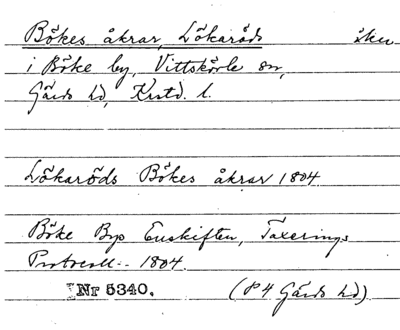 Bökes åkrar, Lökaröds åker
i Böke by, Vittskövle sn,
Gärds hd, Krstd. l.
Lökaröds Bökes åkrar 1804
Böke Bys Enskiften, Taxerings
Protocoll-- 1804.
Nr 5340. (P4 Gärds hd)